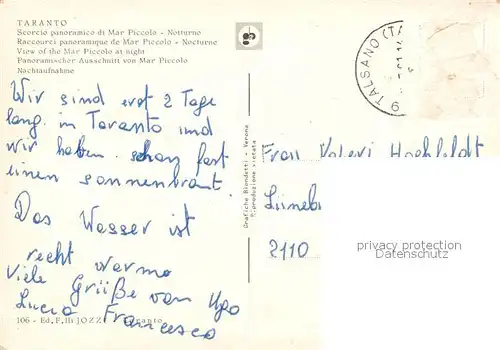 TARANTO
Scorcio panoramico di Mar Piccolo - Notturno
Raccourci panoramique de Mar Piccolo - Nocturne
View of the Mar Piccolo at night
Panoramischer Ausschnitt von Mar Piccolo
Nachtaufnahme
Wir sind erst 2 Tage
lang in Taranto und
wir haben schon fast
einen sonnenbrant.
Das Wasser ist
recht warme
Viele Grüße von Ugo
Lucia Francesco
106 - Ed. F.lli JOZZI Taranto
Grafiche Biondetti - Verona
Riproduzione vietata
TALSANO (TA
Frau Valeri
Lüneb
2110
privacy protection
Datenschutz